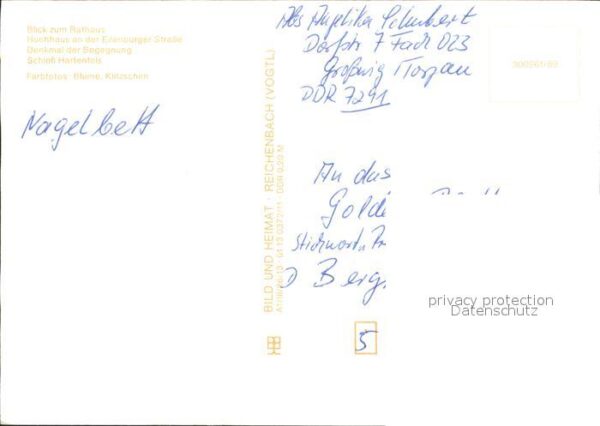 Blick zum Rathaus
Hochhaus an der Eilenburger Straße
Denkmal der Begegnung
Schloß Hartenfels
Farbfotos: Blume, Klitzschen
Nagelbett
BILD UND HEIMAT · REICHENBACH (VOGTL)
DDR 0,20 M
Abs Angelika Schubert
Dorfstr 7 Fach 023
Großwig Torgau
DDR 7291
An das
Gold
Stichwort
Berg
privacy protection
Datenschutz
5